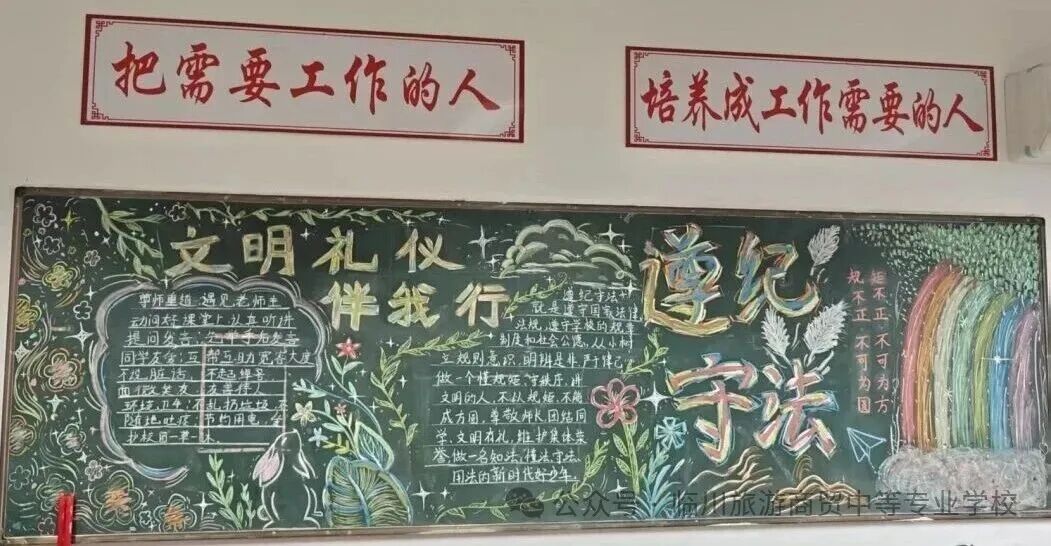 把需要工作的人
培养成工作需要的人
文明礼仪
伴我行
尊师重道,遇见老师主
动问好课堂上认真听讲
提问发言,先举手后发言
同学友善:互帮互助宽容大度
不说脏话,不起绰号
面带微笑友 友善待人
环境卫生,不乱扔垃圾
随地吐痰 节约用电,爱
护校园一草一木
遵纪守法
就是遵守国家法律
法规,遵守学校的规章
制度和社会公德,从小树
立规则意识,明辨是非严于律己
做一个懂规矩、守秩序、讲
文明的人,不以规矩,不能
成方圆,尊敬师长团结同
学,文明有礼,维护集体荣
誉,做一名知法、懂法、守法、
用法的新时代好少年。
遵纪
守法
矩不正,不可为方
规不正,不可为圆
公众号 临川旅游商贸中等专业学校